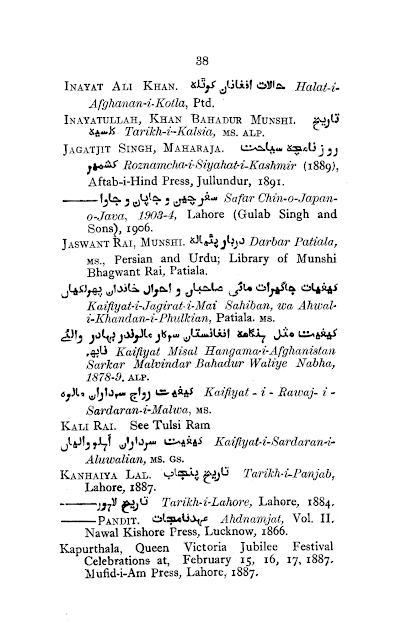 38
INAYAT ALI KHAN. حالات افغانان کوٹلہ Halat-i-
Afghanan-i-Kotla, Ptd.
INAYATULLAH, KHAN BAHADUR MUNSHI. تاریخ
کلسیہ Tarikh-i-Kalsia, MS. ALP.
JAGATJIT SINGH, MAHARAJA. روزنامچہ سیاحت
کشمیر Roznamcha-i-Siyahat-i-Kashmir (1889),
Aftab-i-Hind Press, Jullundur, 1891.
——— سفر چین و جاپان و جاوا Safar Chin-o-Japan-
o-Java, 1903-4, Lahore (Gulab Singh and
Sons), 1906.
JASWANT RAI, MUNSHI. دربار پٹیالہ Darbar Patiala,
MS., Persian and Urdu; Library of Munshi
Bhagwant Rai, Patiala.
کیفیات جاگیرات مائی صاحبان و احوال خاندان پھولکیان
Kaifiyat-i-Jagirat-i-Mai Sahiban, wa Ahwal-
i-Khandan-i-Phulkian, Patiala. MS.
کیفیت مثل ہنگامہ افغانستان سرکار مالوندر بہادر والئے
نابہہ. Kaifiyat Misal Hangama-i-Afghanistan
Sarkar Malvindar Bahadur Waliye Nabha,
1878-9. ALP.
کیفیت رواج سرداران مالوہ Kaifiyat - i - Rawaj- i -
Sardaran-i-Malwa, MS.
KALI RAI. See Tulsi Ram
کیفیت سرداران آہلووالیان Kaifiyat-i-Sardaran-i-
Aluwalian, MS. GS.
KANHAIYA LAL. تاریخ پنجاب Tarikh-i-Panjab,
Lahore, 1887.
——— تاریخ لاہور Tarikh-i-Lahore, Lahore, 1884.
——— PANDIT. عہدنامجات Ahdnamjat, Vol. II.
Nawal Kishore Press, Lucknow, 1866.
Kapurthala, Queen Victoria Jubilee Festival
Celebrations at, February 15, 16, 17, 1887.
Mufid-i-Am Press, Lahore, 1887.